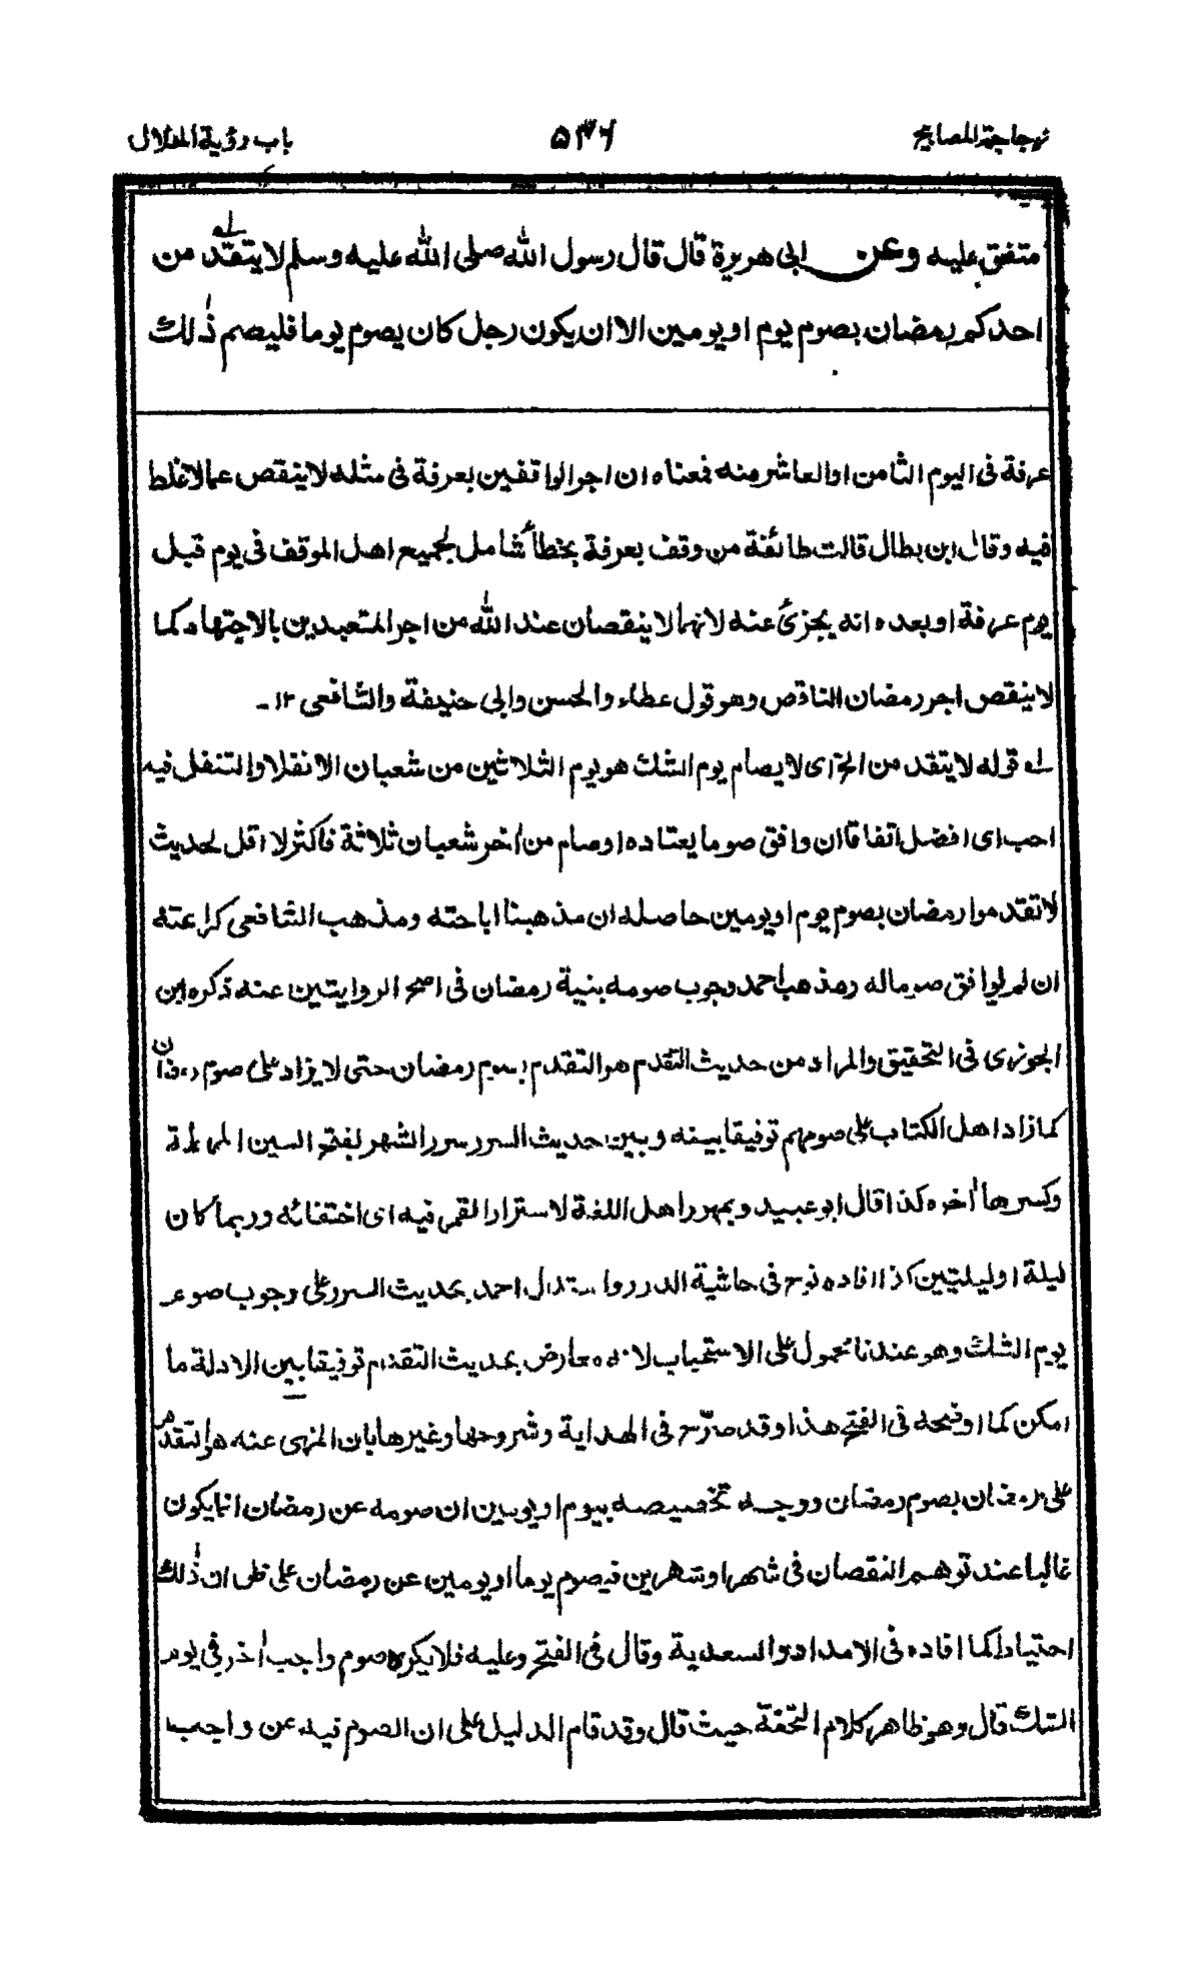 زجاجة المصابيح ٥٣٦ باب رؤية الهلال
متفق عليه وعن ابى هريرة قال قال رسول الله صلى الله عليه وسلم لا يتقد من
احدكم رمضان بصوم يوم او يومين الا ان يكون رجل كان يصوم يوما فليصم ذلك
عرفة فى اليوم الثامن او العاشر منه فمعناه ان اجر الواقفين بعرفة فى مثله لا ينقص عما لا غلط
فيه وقال ابن بطال قالت طائفة من وقف بعرفة بخطأ شامل لجميع اهل الموقف فى يوم قبل
يوم عرفة او بعده انه يجزئ عنه لانهما لا ينقصان عند الله من اجر المتعبدين بالاجتهاد كما
لا ينقص اجر رمضان الناقص وهو قول عطاء والحسن وابى حنيفة والشافعى ١٢ ـ
له قوله لا يتقد من الخ اى لا يصام يوم الشك هو يوم الثلاثين من شعبان الا نفلا والتنفل فيه
احب اى افضل اتفاقا ان وافق صوما يعتاده او صام من اٰخر شعبان ثلاثة فاكثر لا اقل لحديث
لا تقدموا رمضان بصوم يوم او يومين حاصله ان مذهبنا اباحته ومذهب الشافعى كراهته
ان لم يوافق صوما له ومذهب احمد وجوب صومه بنية رمضان فى اصح الروايتين عنه ذكره ابن
الجوزى فى التحقيق والمراد من حديث التقدم هو التقدم بصوم رمضان حتى لا يزاد على صوم رمضان
كما زاد اهل الكتاب على صومهم توفيقا بينه وبين حديث السرر سرر الشهر بفتح السين المهملة
وكسرها اٰخره كذا قال ابو عبيد وجمهور اهل اللغة لاسترار القمر فيه اى اختفائه وربما كان
ليلة او ليلتين كذا افاده نوح فى حاشية الدرر واستدل احمد بحديث السرر على وجوب صوم
يوم الشك وهو عندنا محمول على الاستحباب لانه معارض بحديث التقدم توفيقا بين الادلة ما
امكن كما اوضحه فى الفتح هذا وقد صرّح فى الهداية وشروحها وغيرها بان المنهى عنه هو التقدم
على رمضان بصوم رمضان ووجه تخصيصه بيوم او يومين ان صومه عن رمضان انما يكون
غالبا عند توهم النقصان فى شهر او شهرين فيصوم يوما او يومين عن رمضان على ظن ان ذٰلك
احتياط كما افاده فى الامداد والسعدية وقال فى الفتح وعليه فلا يكره صوم واجب اٰخر فى يوم
الشك قال وهو ظاهر كلام التحفة حيث قال وقد قام الدليل على ان الصوم فيه عن واجب